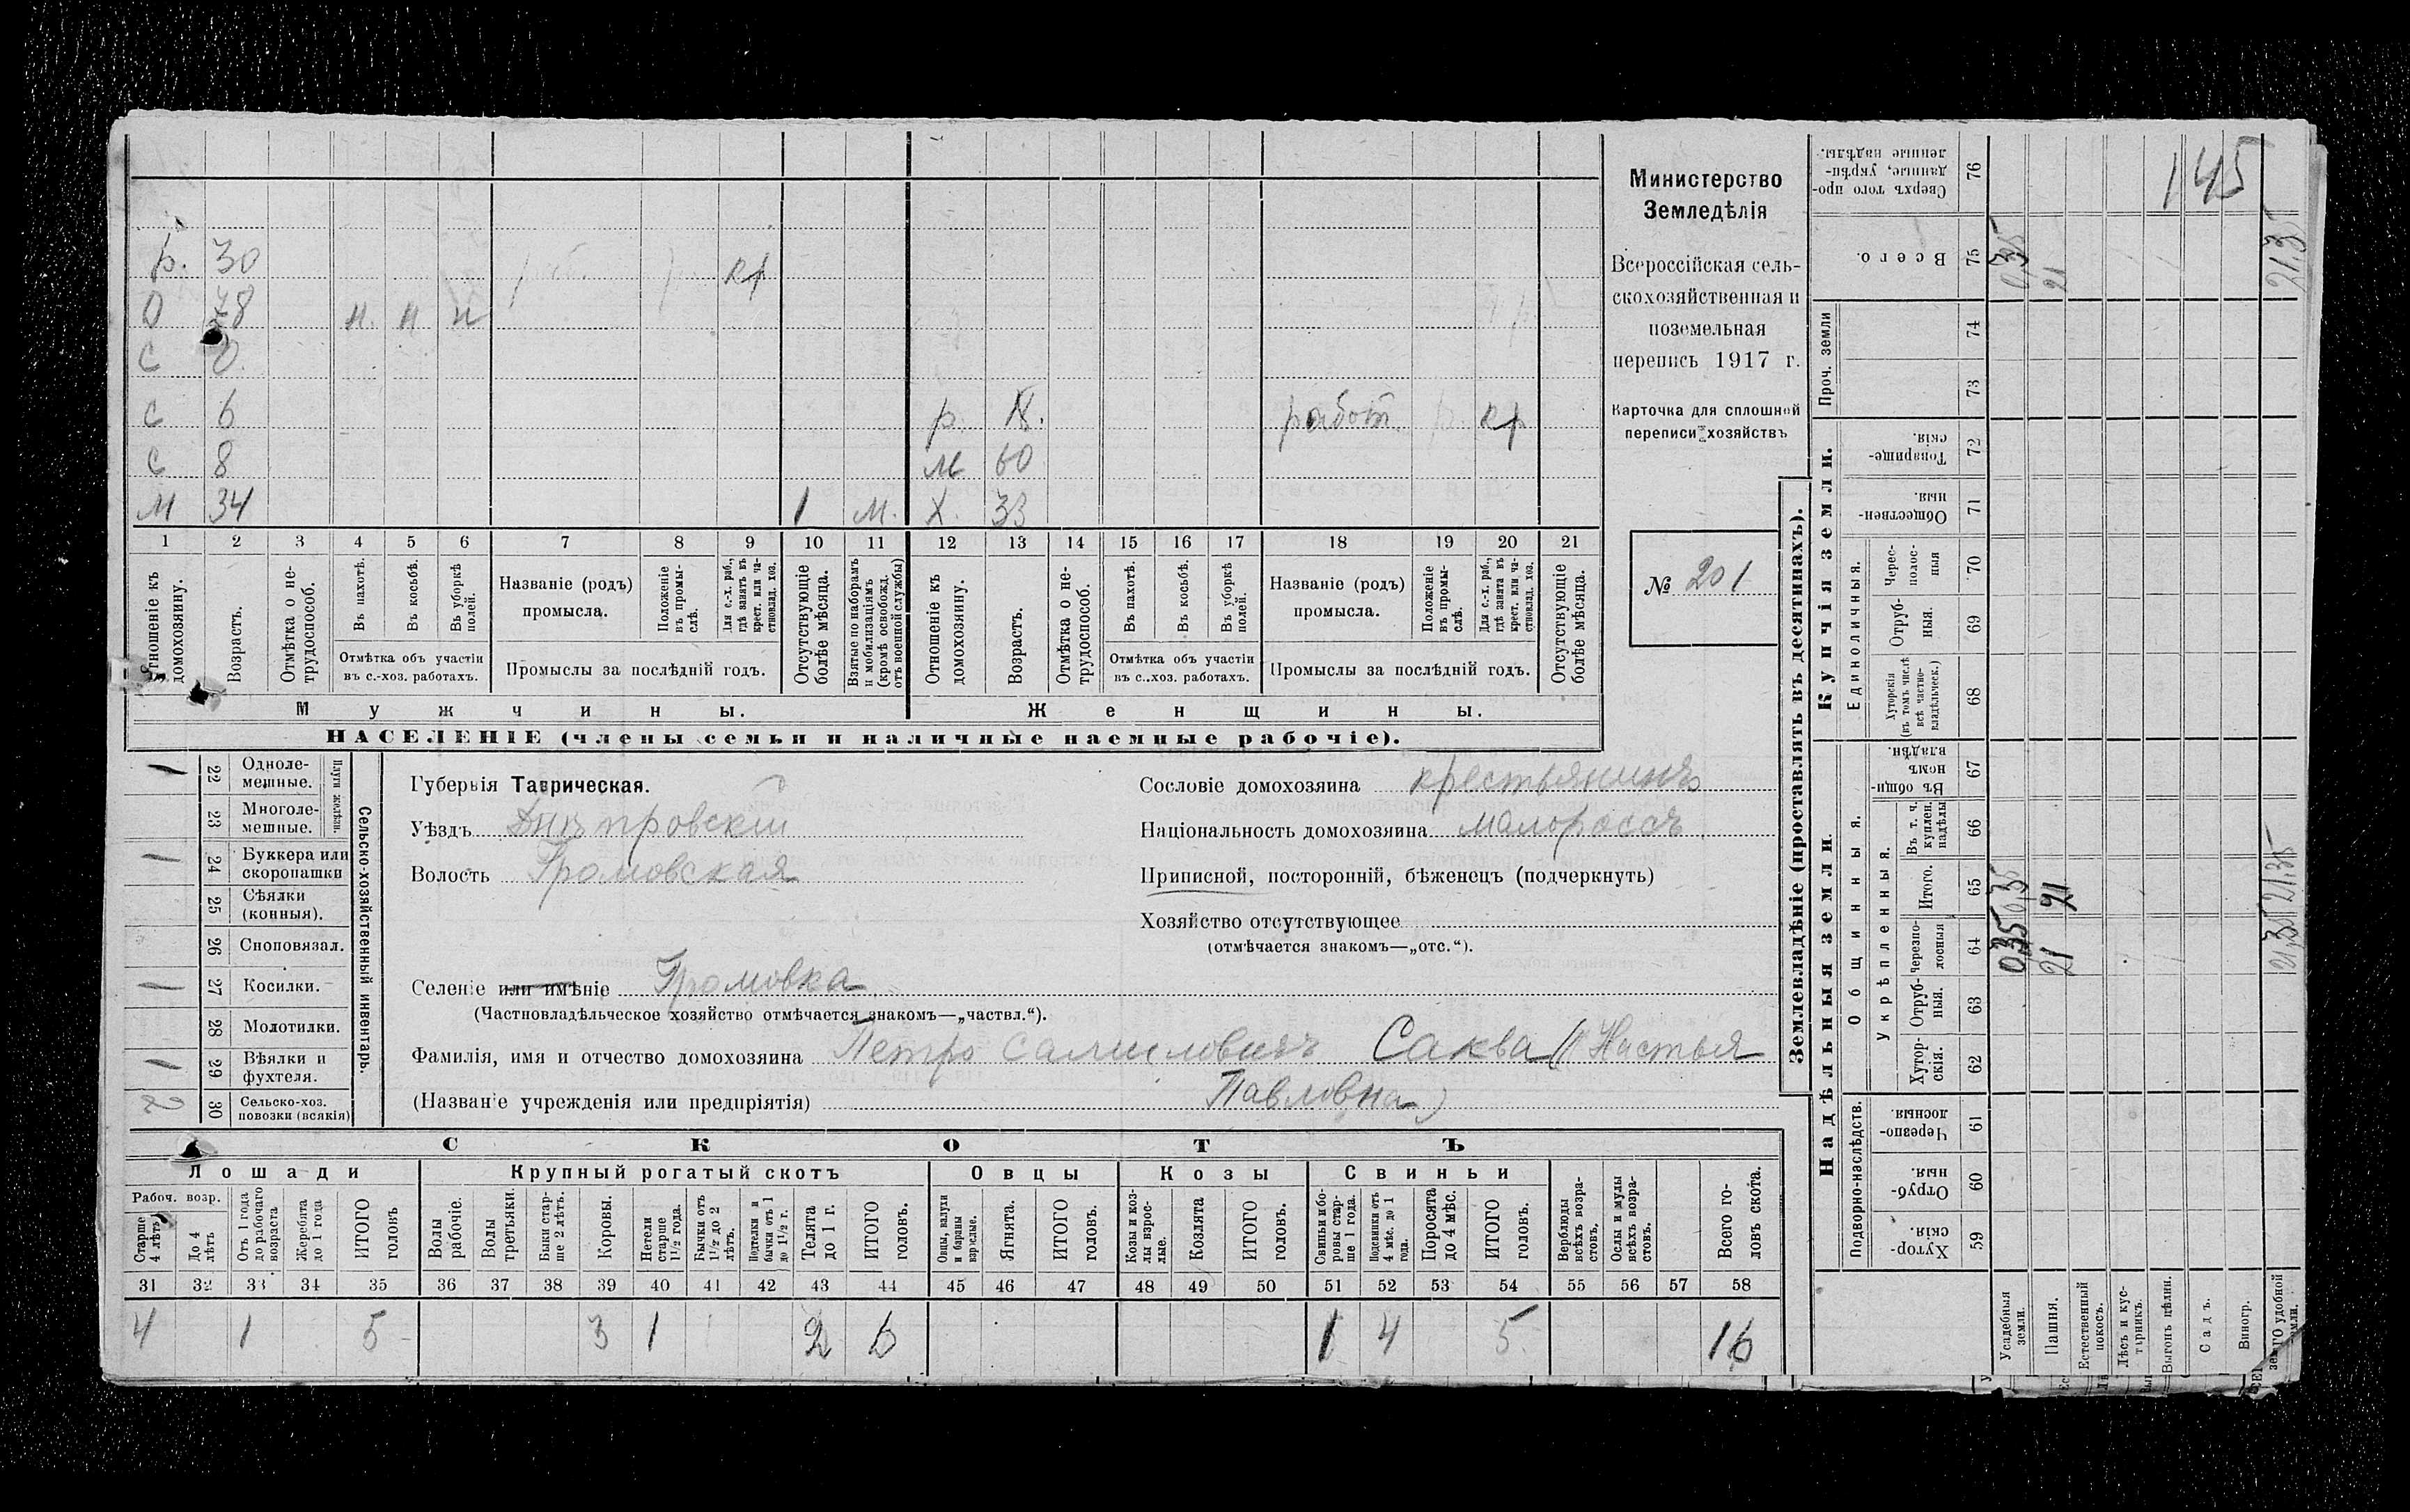 р. 30 раб. р. кр
О 78 н. н н
С 0.
С 6 р. 18. работ. р. кр
С 8 м 60
М 34 1 м. х. 33
1 2 3 4 5 6 7 8 9 10 11 12 13 14 15 16 17 18 19 20 21
Отношеніе къ домохозяину.
Возрастъ.
Отмѣтка о не-трудоспособ.
Въ пахотѣ.
Въ косьбѣ.
Въ уборкѣ полей.
Отмѣтка объ участіи
въ с.-хоз. работахъ.
Названіе (родъ)
промысла.
Положеніе въ промы-слѣ.
Для с.-х. раб., гдѣ занятъ въ крест. или ча-стновлад. хоз.
Промыслы за послѣдній годъ.
Отсутствующіе болѣе мѣсяца.
Взятые по наборамъ и мобилизаціямъ (кромѣ освобожд. отъ военной службы)
Отношеніе къ домохозяину.
Возрастъ.
Отмѣтка о не-трудоспособ.
Въ пахотѣ.
Въ косьбѣ.
Въ уборкѣ полей.
Отмѣтка объ участіи
въ с..хоз. работахъ.
Названіе (родъ)
промысла.
Положеніе въ промы-слѣ.
Для с.-х. раб., гдѣ занята въ крест. или ча-стновлад. хоз.
Промыслы за послѣдній годъ.
Отсутствующіе болѣе мѣсяца.
Мужчины. Женщины.
НАСЕЛЕНІЕ (члены семьи и наличные наемные рабочіе).
Министерство
Земледѣлія
Всероссійская сель-
скохозяйственная и
поземельная
перепись 1917 г.
Карточка для сплошной
переписи хозяйствъ
№ 201
Сельско-хозяйственный инвентарь.
Плуги желѣзн.
1 22 Одноле-мешные.
23 Многоле-мешные.
1 24 Буккера или скоропашки
25 Сѣялки (конныя).
26 Сноповязал.
1 27 Косилки.
28 Молотилки.
1 29 Вѣялки и фухтеля.
2 30 Сельско-хоз. повозки (всякія)
Губернія Таврическая.
Уѣздъ Днѣпровскій
Волость Громовская
Селеніе или имѣніе Громовка
(Частновладѣльческое хозяйство отмѣчается знакомъ—„частвл.“).
Фамилія, имя и отчество домохозяина Петро Самиловичъ Саква (Настья
(Названіе учрежденія или предпріятія) Павловна)
Сословіе домохозяина крестьянинъ
Національность домохозяина малороссъ
Приписной, посторонній, бѣженецъ (подчеркнуть)
Хозяйство отсутствующее
(отмѣчается знакомъ—„отс.“).
СКОТЪ
Лошади Крупный рогатый скотъ Овцы Козы Свиньи
Рабоч. возр.
Старше 4 лѣтъ
До 4 лѣтъ
Отъ 1 года до рабочаго возраста
Жеребята до 1 года
ИТОГО головъ
Волы рабочіе.
Волы третьяки.
Быки стар-ше 2 лѣтъ.
Коровы.
Нетели старше 1½ года.
Бычки отъ 1½ до 2 лѣтъ.
Нетелки и бычки отъ 1 до 1½ г.
Телята до 1 г.
ИТОГО головъ.
Овцы, валухи и бараны взрослые.
Ягнята.
ИТОГО головъ.
Козы и коз-лы взрос-лые.
Козлята
ИТОГО головъ.
Свиньи и бо-ровы стар-ше 1 года.
Подсвинки отъ 4 мѣс. до 1 года.
Поросята до 4 мѣс.
ИТОГО головъ.
Верблюды всѣхъ возра-стовъ.
Ослы и мулы всѣхъ возра-стовъ.
Всего го-ловъ скота.
31 32 33 34 35 36 37 38 39 40 41 42 43 44 45 46 47 48 49 50 51 52 53 54 55 56 57 58
4 1 5 3 1 2 6 1 4 5 16
Землевладѣніе (проставлять въ десятинахъ).
Надѣльныя земли.
Купчія земли.
Подворно-наслѣдств.
Общинныя.
Укрѣпленныя.
Единоличныя.
Проч. земли
Хутор-скія. 59
Отруб-ныя. 60
Черезпо-лосныя 61
Хутор-скія. 62
Отруб-ныя. 63
Черезпо-лосныя 64
Итого. 65
Въ т. ч. куплен. надѣлы 66
Въ общи-номъ владѣн. 67
Хуторскія (въ томъ числѣ всѣ частно-владѣльческ.) 68
Отруб-ныя. 69
Черес-полос-ныя 70
Обществен-ныя. 71
Товарище-скія. 72
73
74
Всего. 75
Сверхъ того про-данные, укрѣп-ленные надѣлы. 76
Усадебныя земли. 0,35 0,35 0,35
Пашня. 21 21 21
Естественный покосъ.
Лѣсъ и кус-тарникъ.
Выгонъ цѣлин.
Садъ.
Виногр.
ИТОГО удобной земли. 21,35 21,35 21,35
145